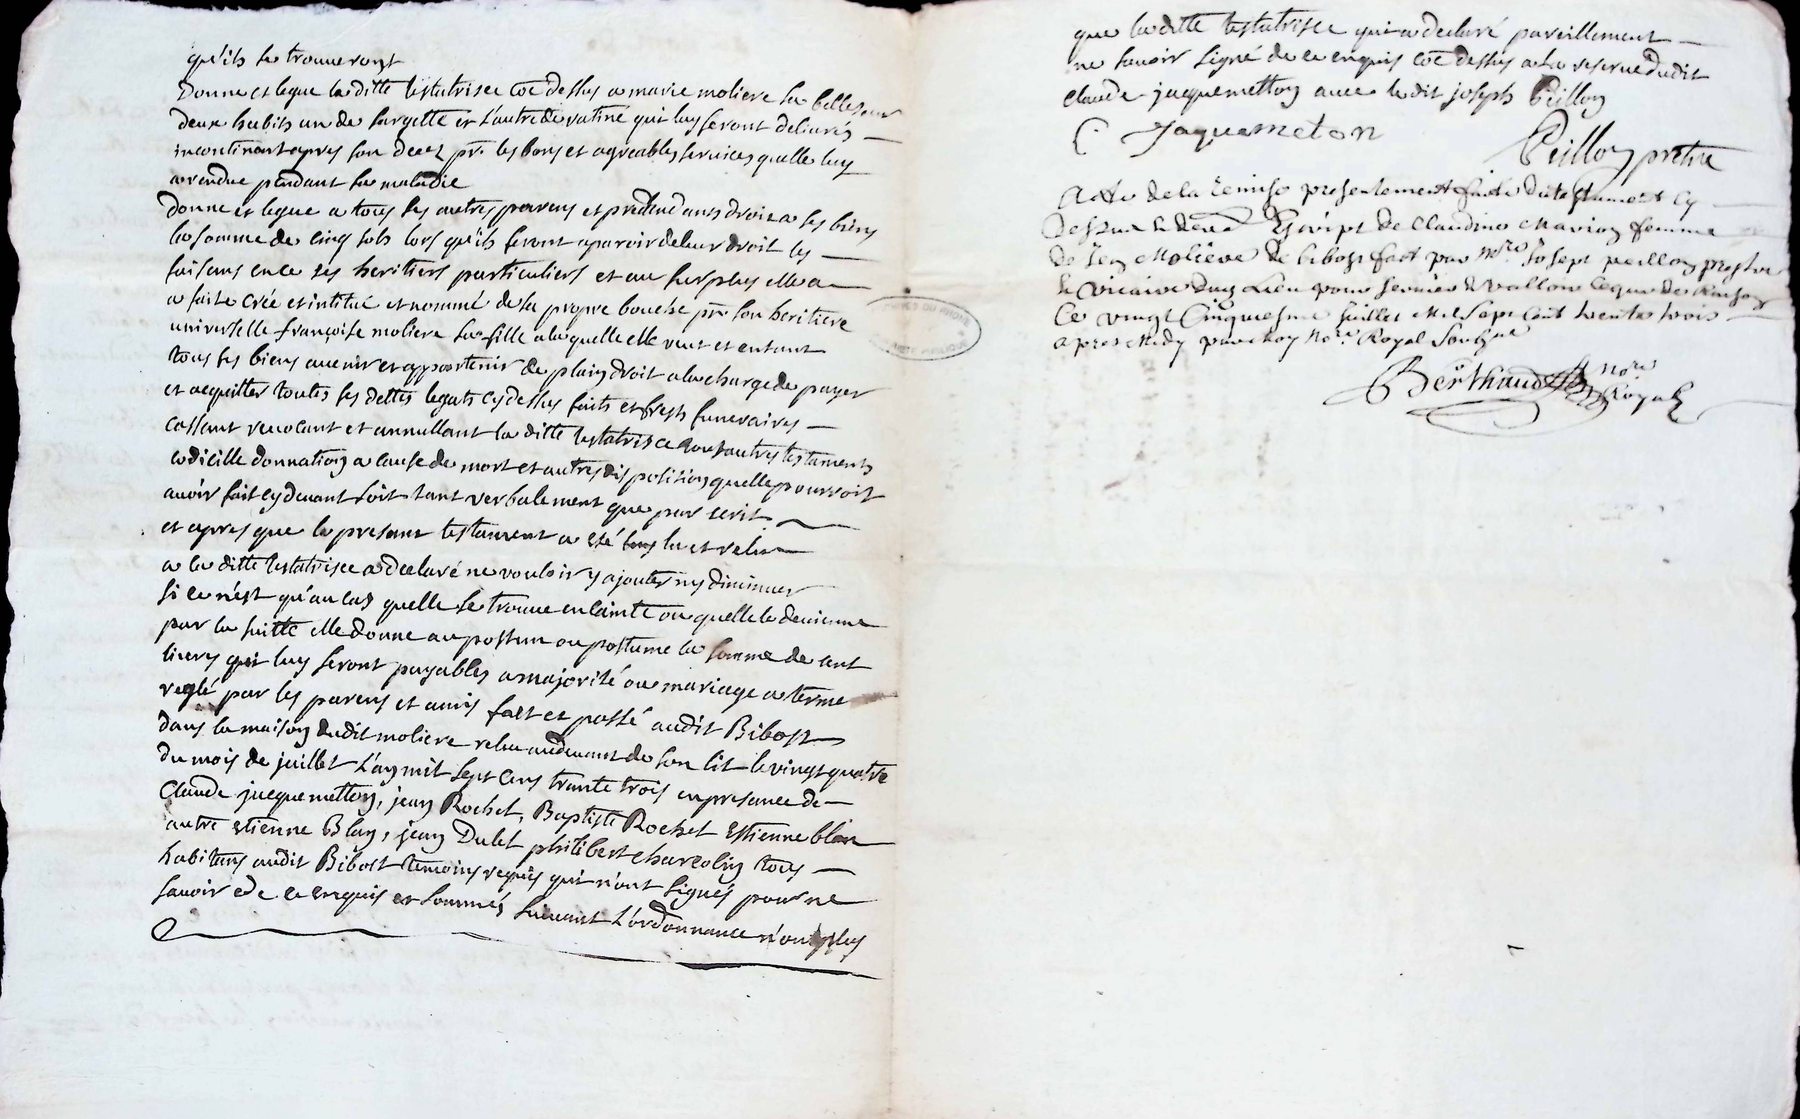 qu'ils se trouveront
Donne et legue la ditte testatrisce coe dessus a marie moliere sa belle soeur
deux habits un de sargette et l'autre de ratine qui luy seront delivrés
incontinant apres son decez pr. les bons et agreables services quelle luy
a rendue pendant sa maladie
donne et legue a tous ses autres parens et pretendants droit a ses biens
la somme de cinq sols lors qu'ils feront aparoir de leur droit les
faisans en ce ses heritiers particuliers et au surplus elle a
a faite crée et institué et nommé de sa propre bouche pr. son heritiere
universelle françoise moliere sa fille a la quelle elle veut et entant
tous ses biens avenir et appartenir de plain droit a la charge de payer
et acquitter toutes ses dettes legats cy dessus faits et frests funeraires
cassant revocant et annullant la ditte testatrisce tous autres testaments
codicille donnation a cause de mort et autres disposition quelle pourroit
avoir fait cy devant soit tant verbalement que par ecrit
et apres que le presant testament a eté lu et relu
a la ditte testatrisce a declaré ne vouloir y ajouter ny diminuer
si ce n'est qu'au cas quelle se trouve enceinte ou quelle le devienne
par la suitte elle donne au postum ou postume la somme de cent
livres qui luy seront payables a majorité ou mariage a terme
reglé par les parens et amis fait et passé audit Bibost
dans la maison dudit moliere relu au devant de son lit le vingt quatre
du mois de juillet l'an mil sept cens trante trois en presance de
Claude jacquemetton, jean Rochet, Baptiste Rochet Estienne blan
autre etienne Blan, jean Dulet philibert charcolin tous
habitans audit Bibost temoins requis qui n'ont signés pour ne
savoir ede ce enquis et sommés suivant l'ordonnance non plus
que la ditte testatrisce qui a declaré pareillement
ne savoir signé de ce enquis coe dessus a la reserve dudit
claude jaquemetton avec le dit joseph Peillon
C. Jaquemeton
Peillon pretre
Acte de la remise presentement faite du testament cy
Dessus de Claudine Marion femme
de Moliere de bibost fait par Mre. Josept peillon prestre
& vicaire dud. Lieu pour servir & valloir ce que de Raison
Ce vingt Cinquiesme Juillet Mil Sept Cent trente trois
apres Midy par Moy Nore. Royal Soubzné
Berthaud nore Royal